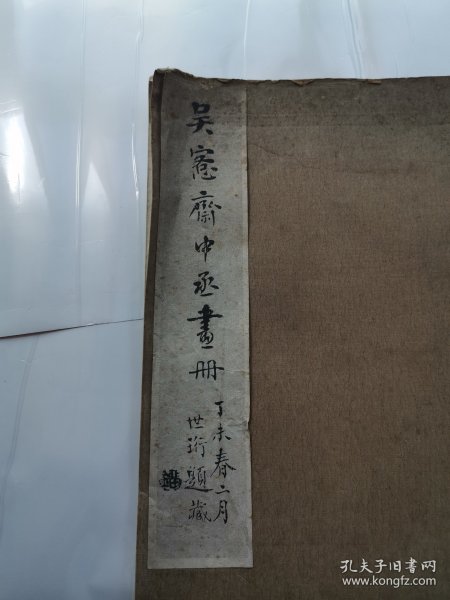 吴愙齋中丞畫冊
丁未春二月
世珩題藏
孔夫子旧书网
www.kongfz.com